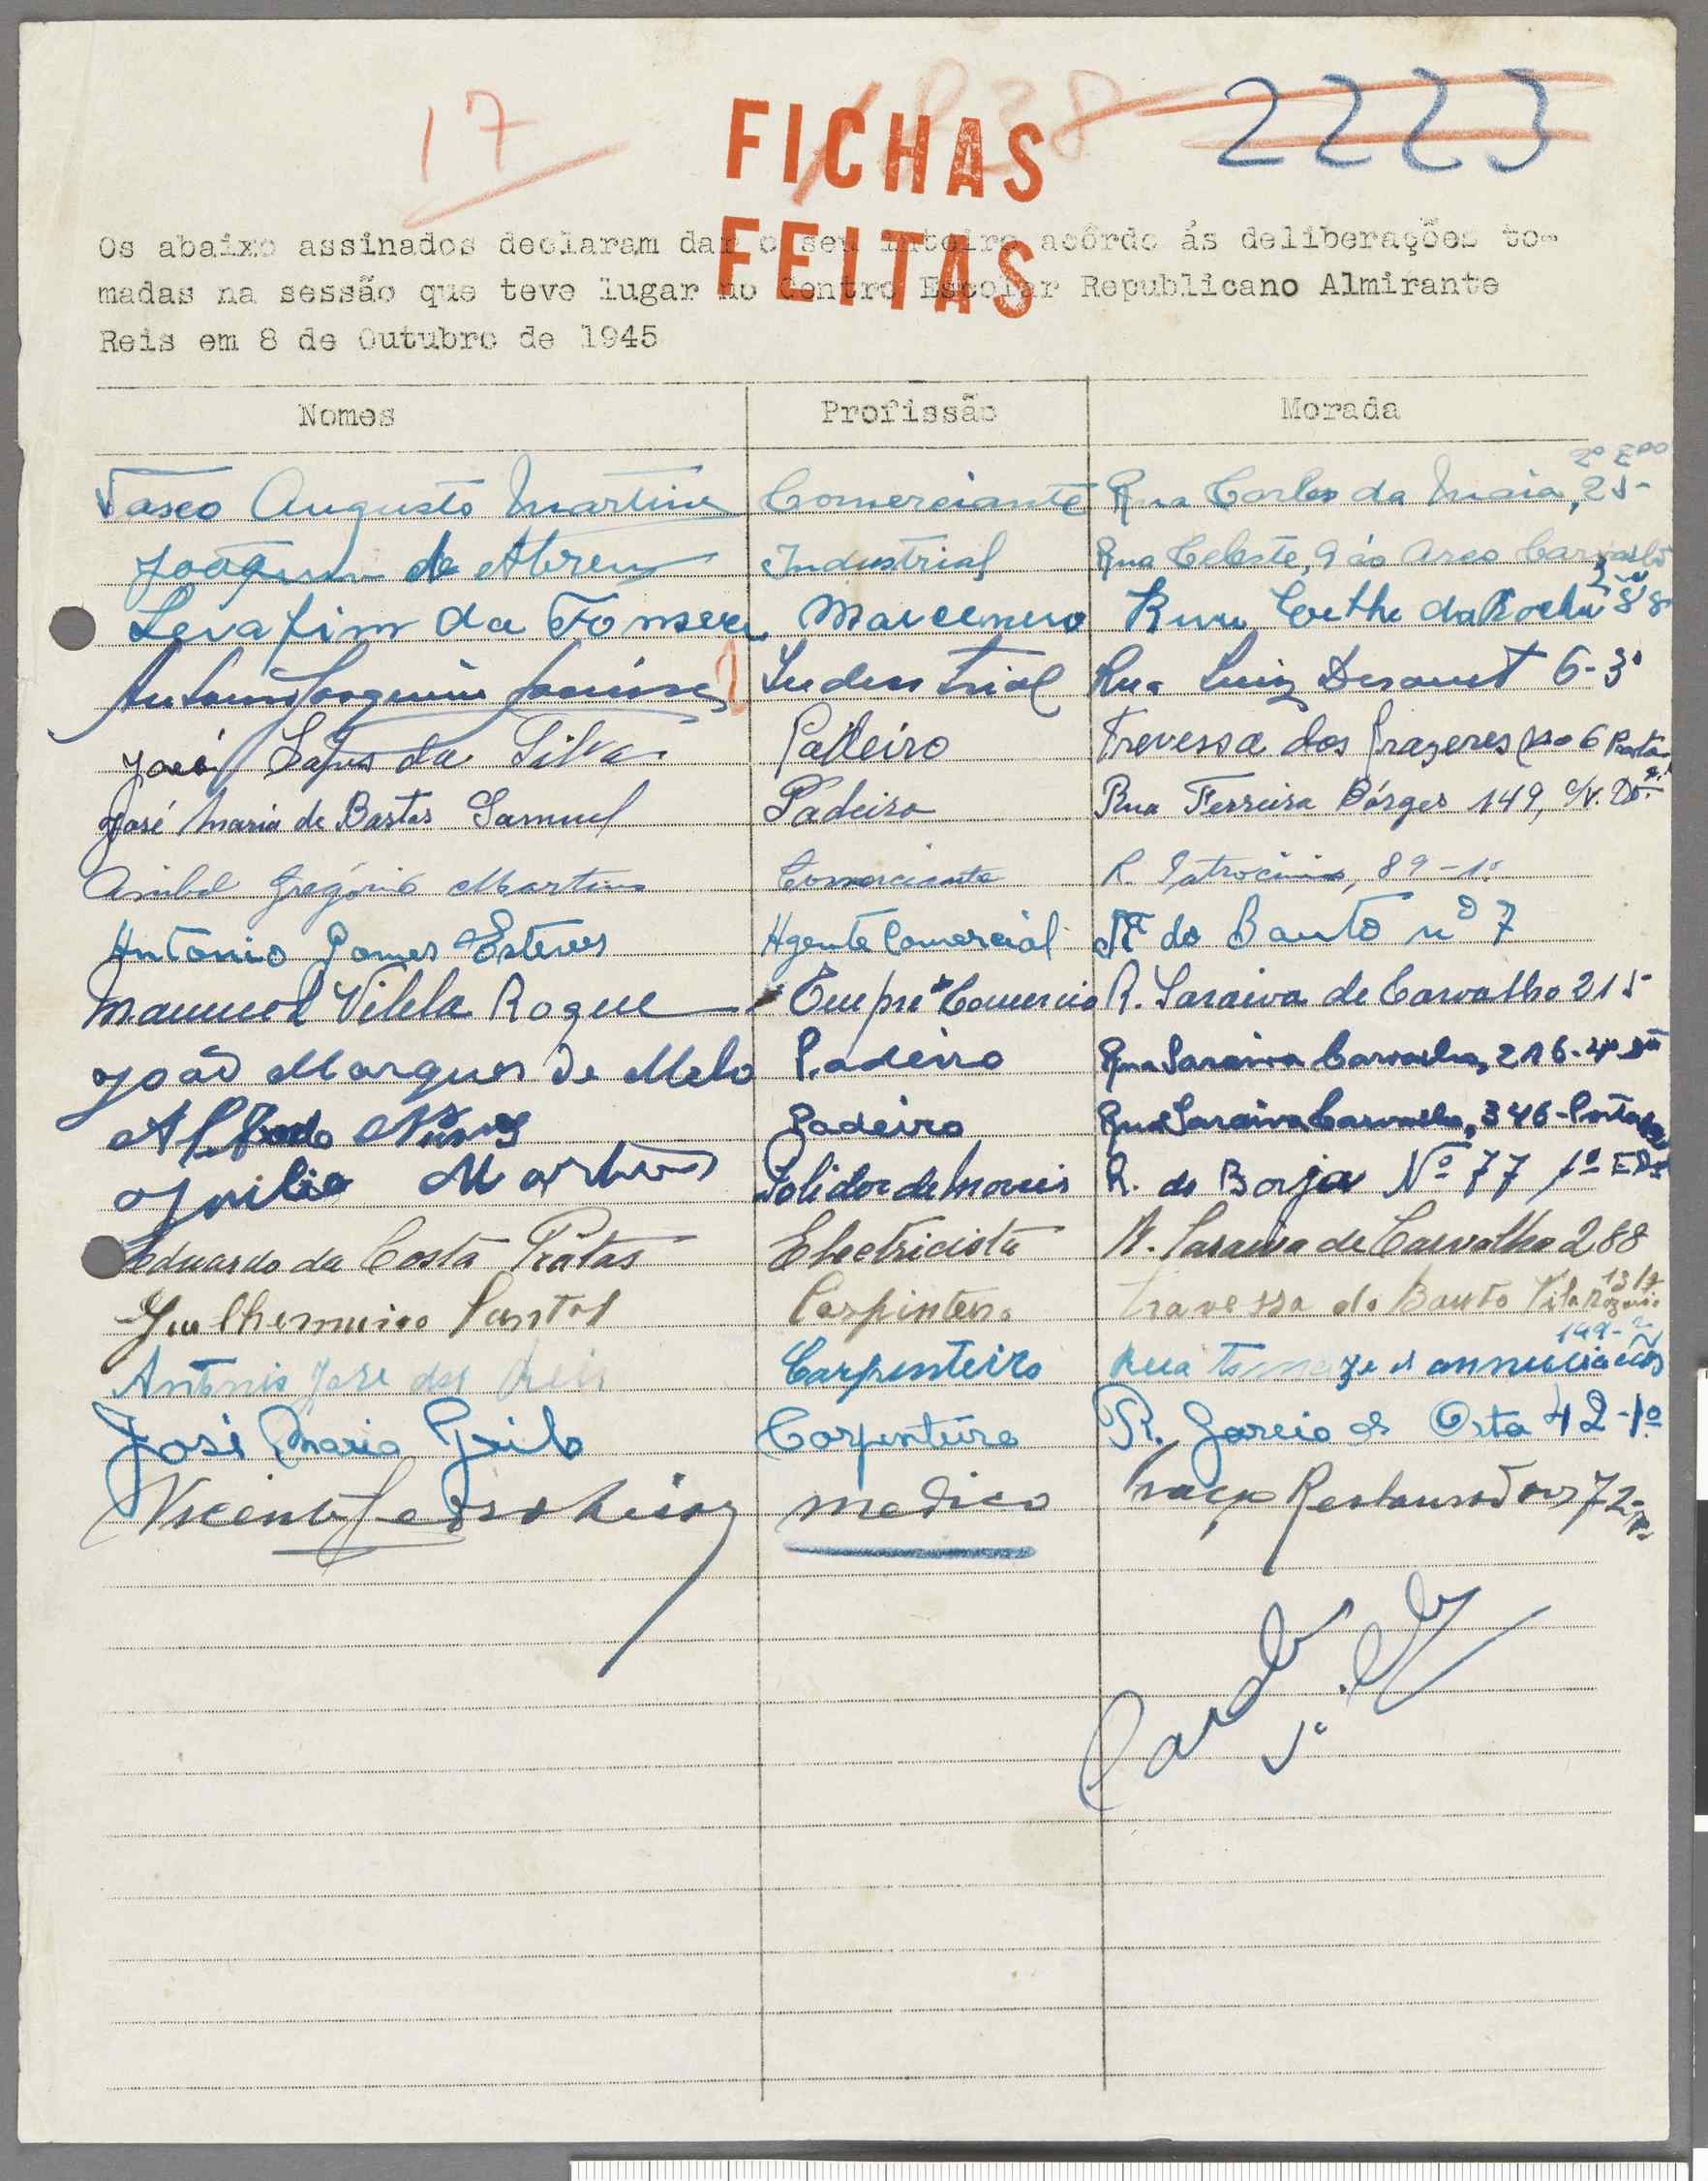 17 1838 2223
FICHAS
FEITAS
Os abaixo assinados declaram dar o seu inteiro acôrdo ás deliberações to-
madas na sessão que teve lugar no Centro Escolar Republicano Almirante
Reis em 8 de Outubro de 1945
Nomes Profissão Morada
Vasco Augusto Martins Comerciante Rua Carlos da Maia, 25- 2º Eдо
Joaquim de Abreu Industrial Rua Celeste, 9 ao Arco Carvalhão
Serafim da Fonseca Marceneiro Rua Coelho da Rocha 88
Antonio Joaquim Industrial Rua Luiz Derouet 6-3º
José Lopes da Silva Padeiro Trevessa dos Prazeres no 6 Porta
José Maria de Bastos Samuel Padeiro Rua Ferreira Bórges 149, c/v. Dº.
Anibal Gregório Martins Comerciante R. Patrocinio, 89-1º
António Gomes Esteves Agente Comercial Tª do Bauto nº 7
Manuel Vilela Roque Empre Comercio R. Saraiva de Carvalho 215
João Marques de Melo Padeiro Rua Saraiva Carvalho, 216-4º
Alfredo Nunes Padeiro Rua Saraiva Carvalho, 346-Porta
Julio Martins Polidor de Moveis R. do Borja Nº 77 1º
Eduardo da Costa Prátas Electricista R. Saraiva de Carvalho 288
Guilhermino Santos Carpinteiro travessa do Bauto Vila
António José dos Reis Carpinteiro Rua 149-2
José Maria Grilo Carpinteiro R. Garcia de Orta 42-1º
Vicente medico Praça Restauradores 72